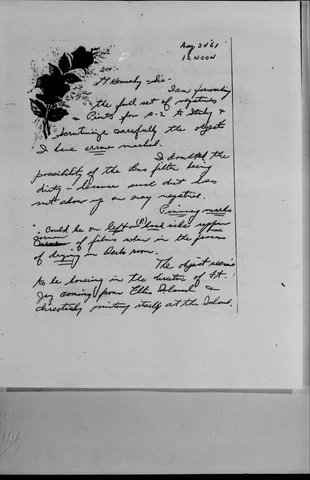 Aug 24 '61
12 NOON
Lt. Kennedy - Sir -
I am forwarding
the full set of negatives
& Prints for A-2 to Study &
Scrutinize carefully the object
I have crome marked.
I doubted the
possibility of the lens filter being
dirty - because such dirt does
not show up on every negative.
Pinning marks
Could be on left or side upper
corner of films when in the process
of drying in Dark room.
The object seems
to be in the direction of St.
coming from Ellis Island &
directly itself at the Island.